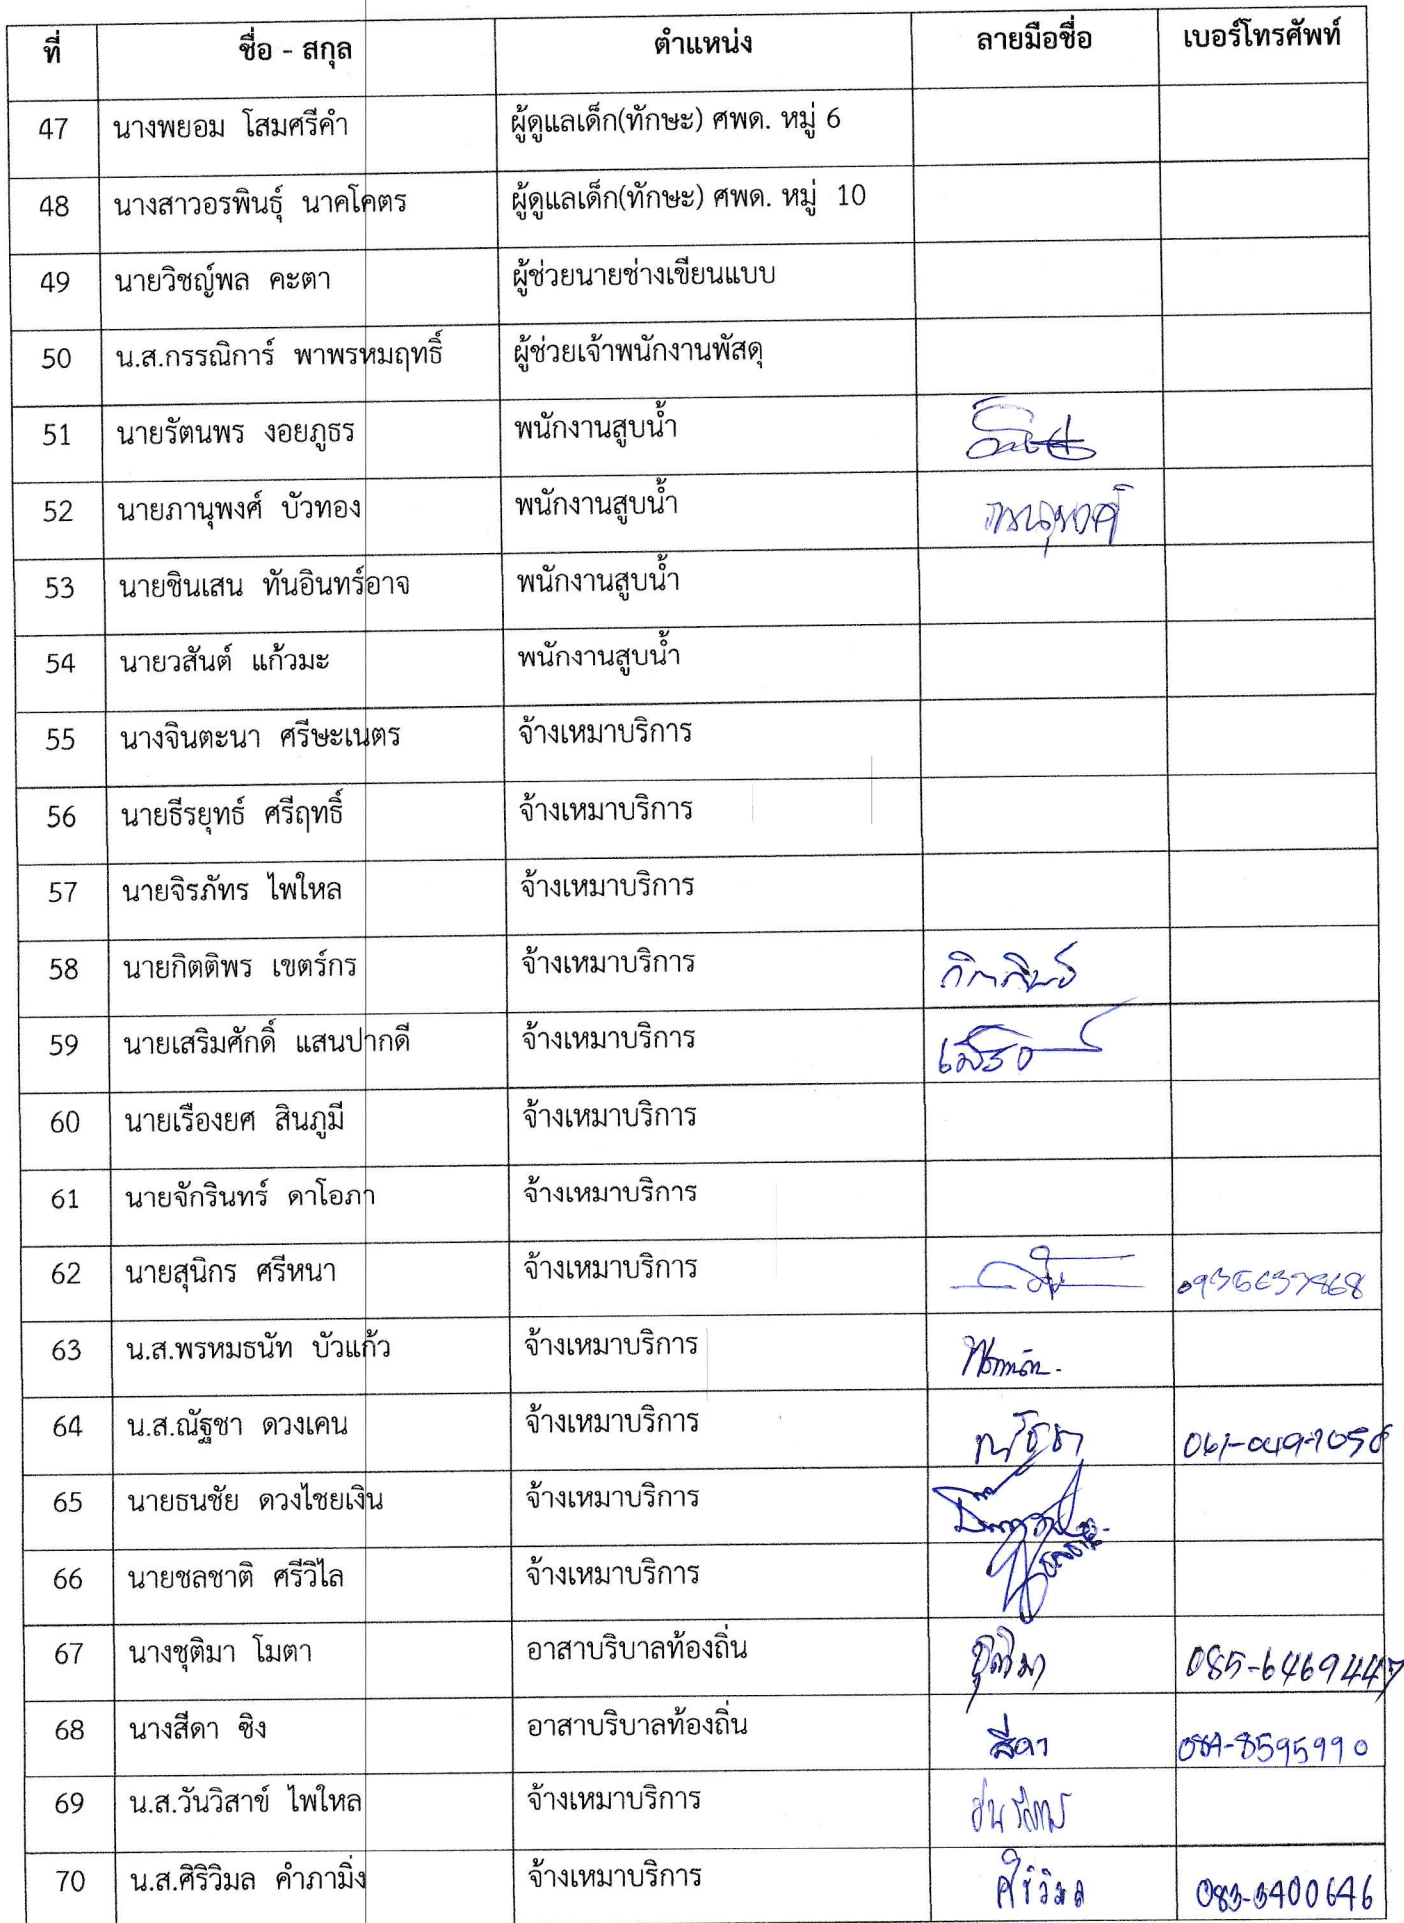 ที่ ชื่อ - สกุล ตำแหน่ง ลายมือชื่อ เบอร์โทรศัพท์
47 นางพยอม โสมศรีคำ ผู้ดูแลเด็ก(ทักษะ) ศพด. หมู่ 6
48 นางสาวอรพินธุ์ นาคโคตร ผู้ดูแลเด็ก(ทักษะ) ศพด. หมู่ 10
49 นายวิชญ์พล คะตา ผู้ช่วยนายช่างเขียนแบบ
50 น.ส.กรรณิการ์ พาพรหมฤทธิ์ ผู้ช่วยเจ้าพนักงานพัสดุ
51 นายรัตนพร งอยภูธร พนักงานสูบน้ำ
52 นายภานุพงศ์ บัวทอง พนักงานสูบน้ำ ภานุพงศ์
53 นายชินเสน ทันอินทร์อาจ พนักงานสูบน้ำ
54 นายวสันต์ แก้วมะ พนักงานสูบน้ำ
55 นางจินตะนา ศรีษะเนตร จ้างเหมาบริการ
56 นายธีรยุทธ์ ศรีฤทธิ์ จ้างเหมาบริการ
57 นายจิรภัทร ไพใหล จ้างเหมาบริการ
58 นายกิตติพร เขตร์กร จ้างเหมาบริการ
59 นายเสริมศักดิ์ แสนปากดี จ้างเหมาบริการ
60 นายเรืองยศ สินภูมี จ้างเหมาบริการ
61 นายจักรินทร์ ดาโอภา จ้างเหมาบริการ
62 นายสุนิกร ศรีหนา จ้างเหมาบริการ
63 น.ส.พรหมธนัท บัวแก้ว จ้างเหมาบริการ
64 น.ส.ณัฐชา ดวงเคน จ้างเหมาบริการ ณัฐชา
65 นายธนชัย ดวงไชยเงิน จ้างเหมาบริการ
66 นายชลชาติ ศรีวิไล จ้างเหมาบริการ
67 นางชุติมา โมตา อาสาบริบาลท้องถิ่น ชุติมา 085-6469447
68 นางสีดา ซิง อาสาบริบาลท้องถิ่น สีดา 084-8595990
69 น.ส.วันวิสาข์ ไพใหล จ้างเหมาบริการ
70 น.ส.ศิริวิมล คำภามิ่ง จ้างเหมาบริการ ศิริวิมล 083-3400646